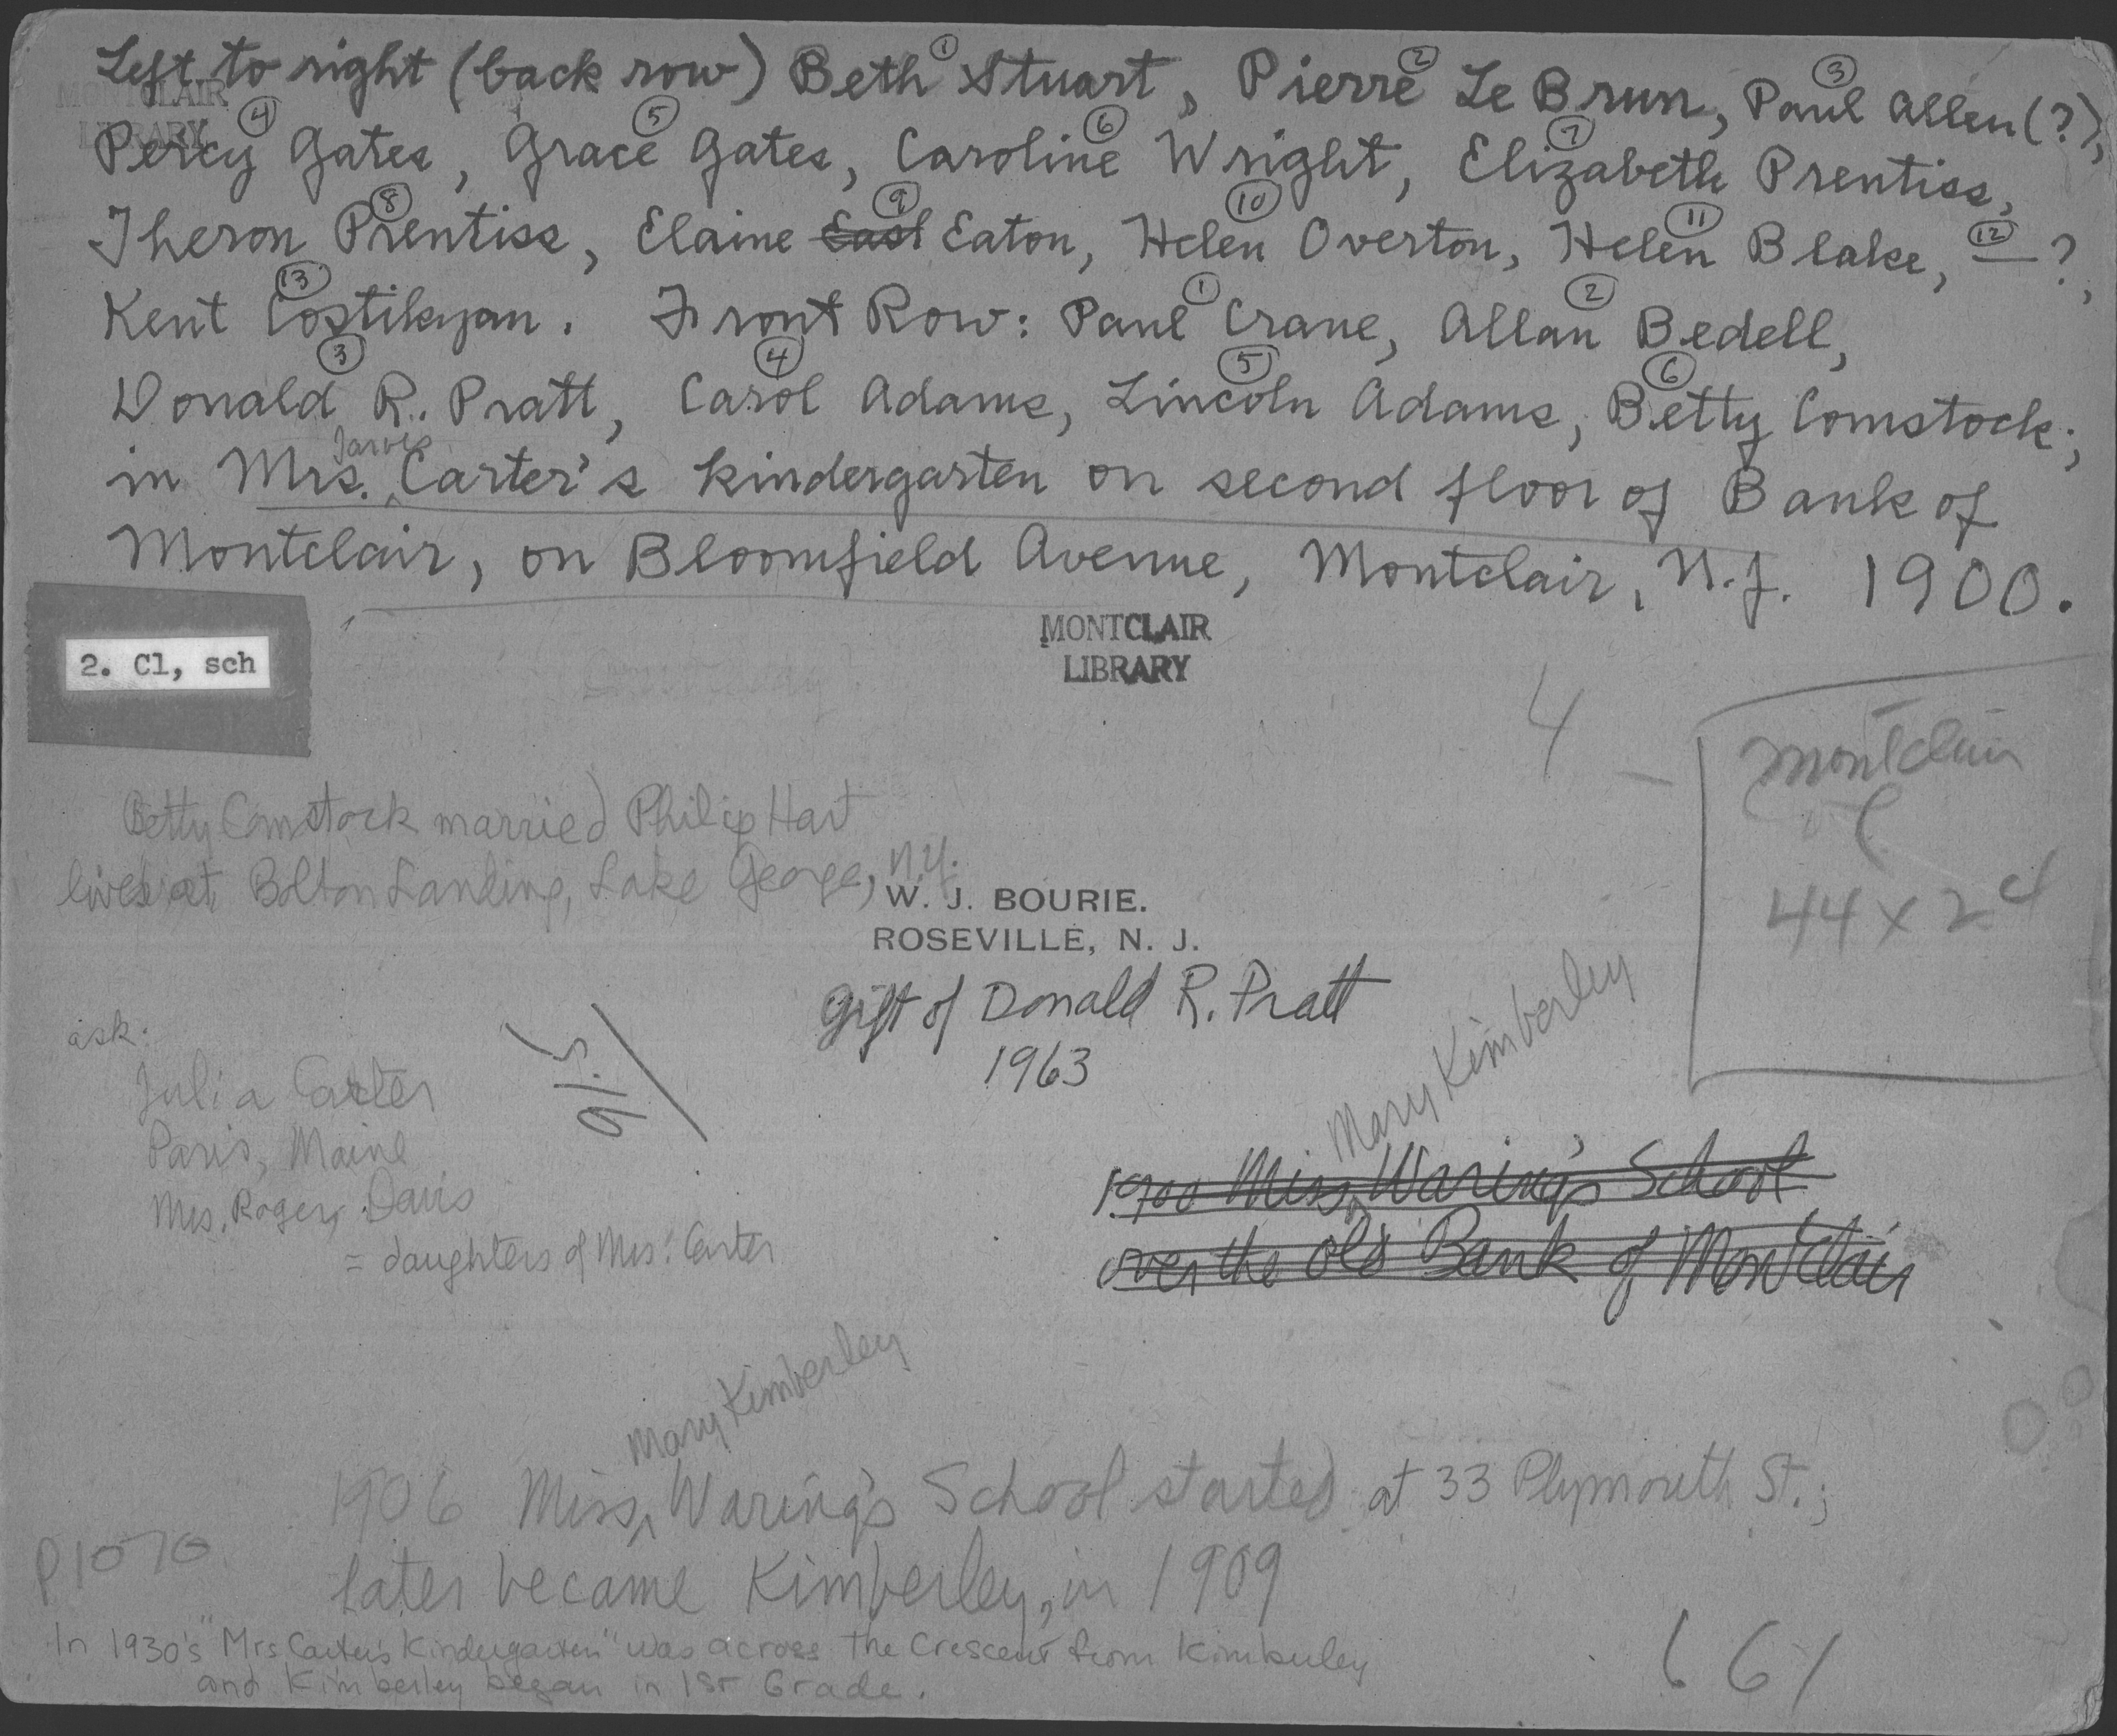 Left to right (back row) Beth ① Stuart, Pierre ② Le Brun, Paul ③ Allen (?),
MONTCLAIR
LIBRARY
Percy ④ Gates, Grace ⑤ Gates, Caroline ⑥ Wright, Elizabeth ⑦ Prentiss,
Theron ⑧ Prentiss, Elaine East ⑨ Eaton, Helen ⑩ Overton, Helen ⑪ Blake, ⑫ — ?,
Kent ⑬ Costikyan. Front Row: Paul ① Crane, Allan ② Bedell,
Donald ③ R. Pratt, Carol ④ Adams, Lincoln ⑤ Adams, Betty ⑥ Comstock;
in Mrs. Jarvis Carter's kindergarten on second floor of Bank of
Montclair, on Bloomfield Avenue, Montclair, N.J. 1900.
MONTCLAIR
LIBRARY
2. Cl, sch
4 —
Montclair
44 x 24
Betty Comstock married Philip Hart
lives at Bolton Landing, Lake George, N.Y.
W. J. BOURIE.
ROSEVILLE, N. J.
Gift of Donald R. Pratt
1963
ask:
Julia Carter
Paris, Maine
Mrs. Roger Davis
= daughters of Mrs. Carter
91.5
Mary Kimberley
1900 Miss Waring's School
over the old Bank of Montclair
Mary Kimberley
1906 Miss Waring's School started at 33 Plymouth St.;
later became Kimberley, in 1909
P1070
In 1930's "Mrs Carter's Kindergarten" was across the Crescent from Kimberley
and Kimberley began in 1st Grade.
661